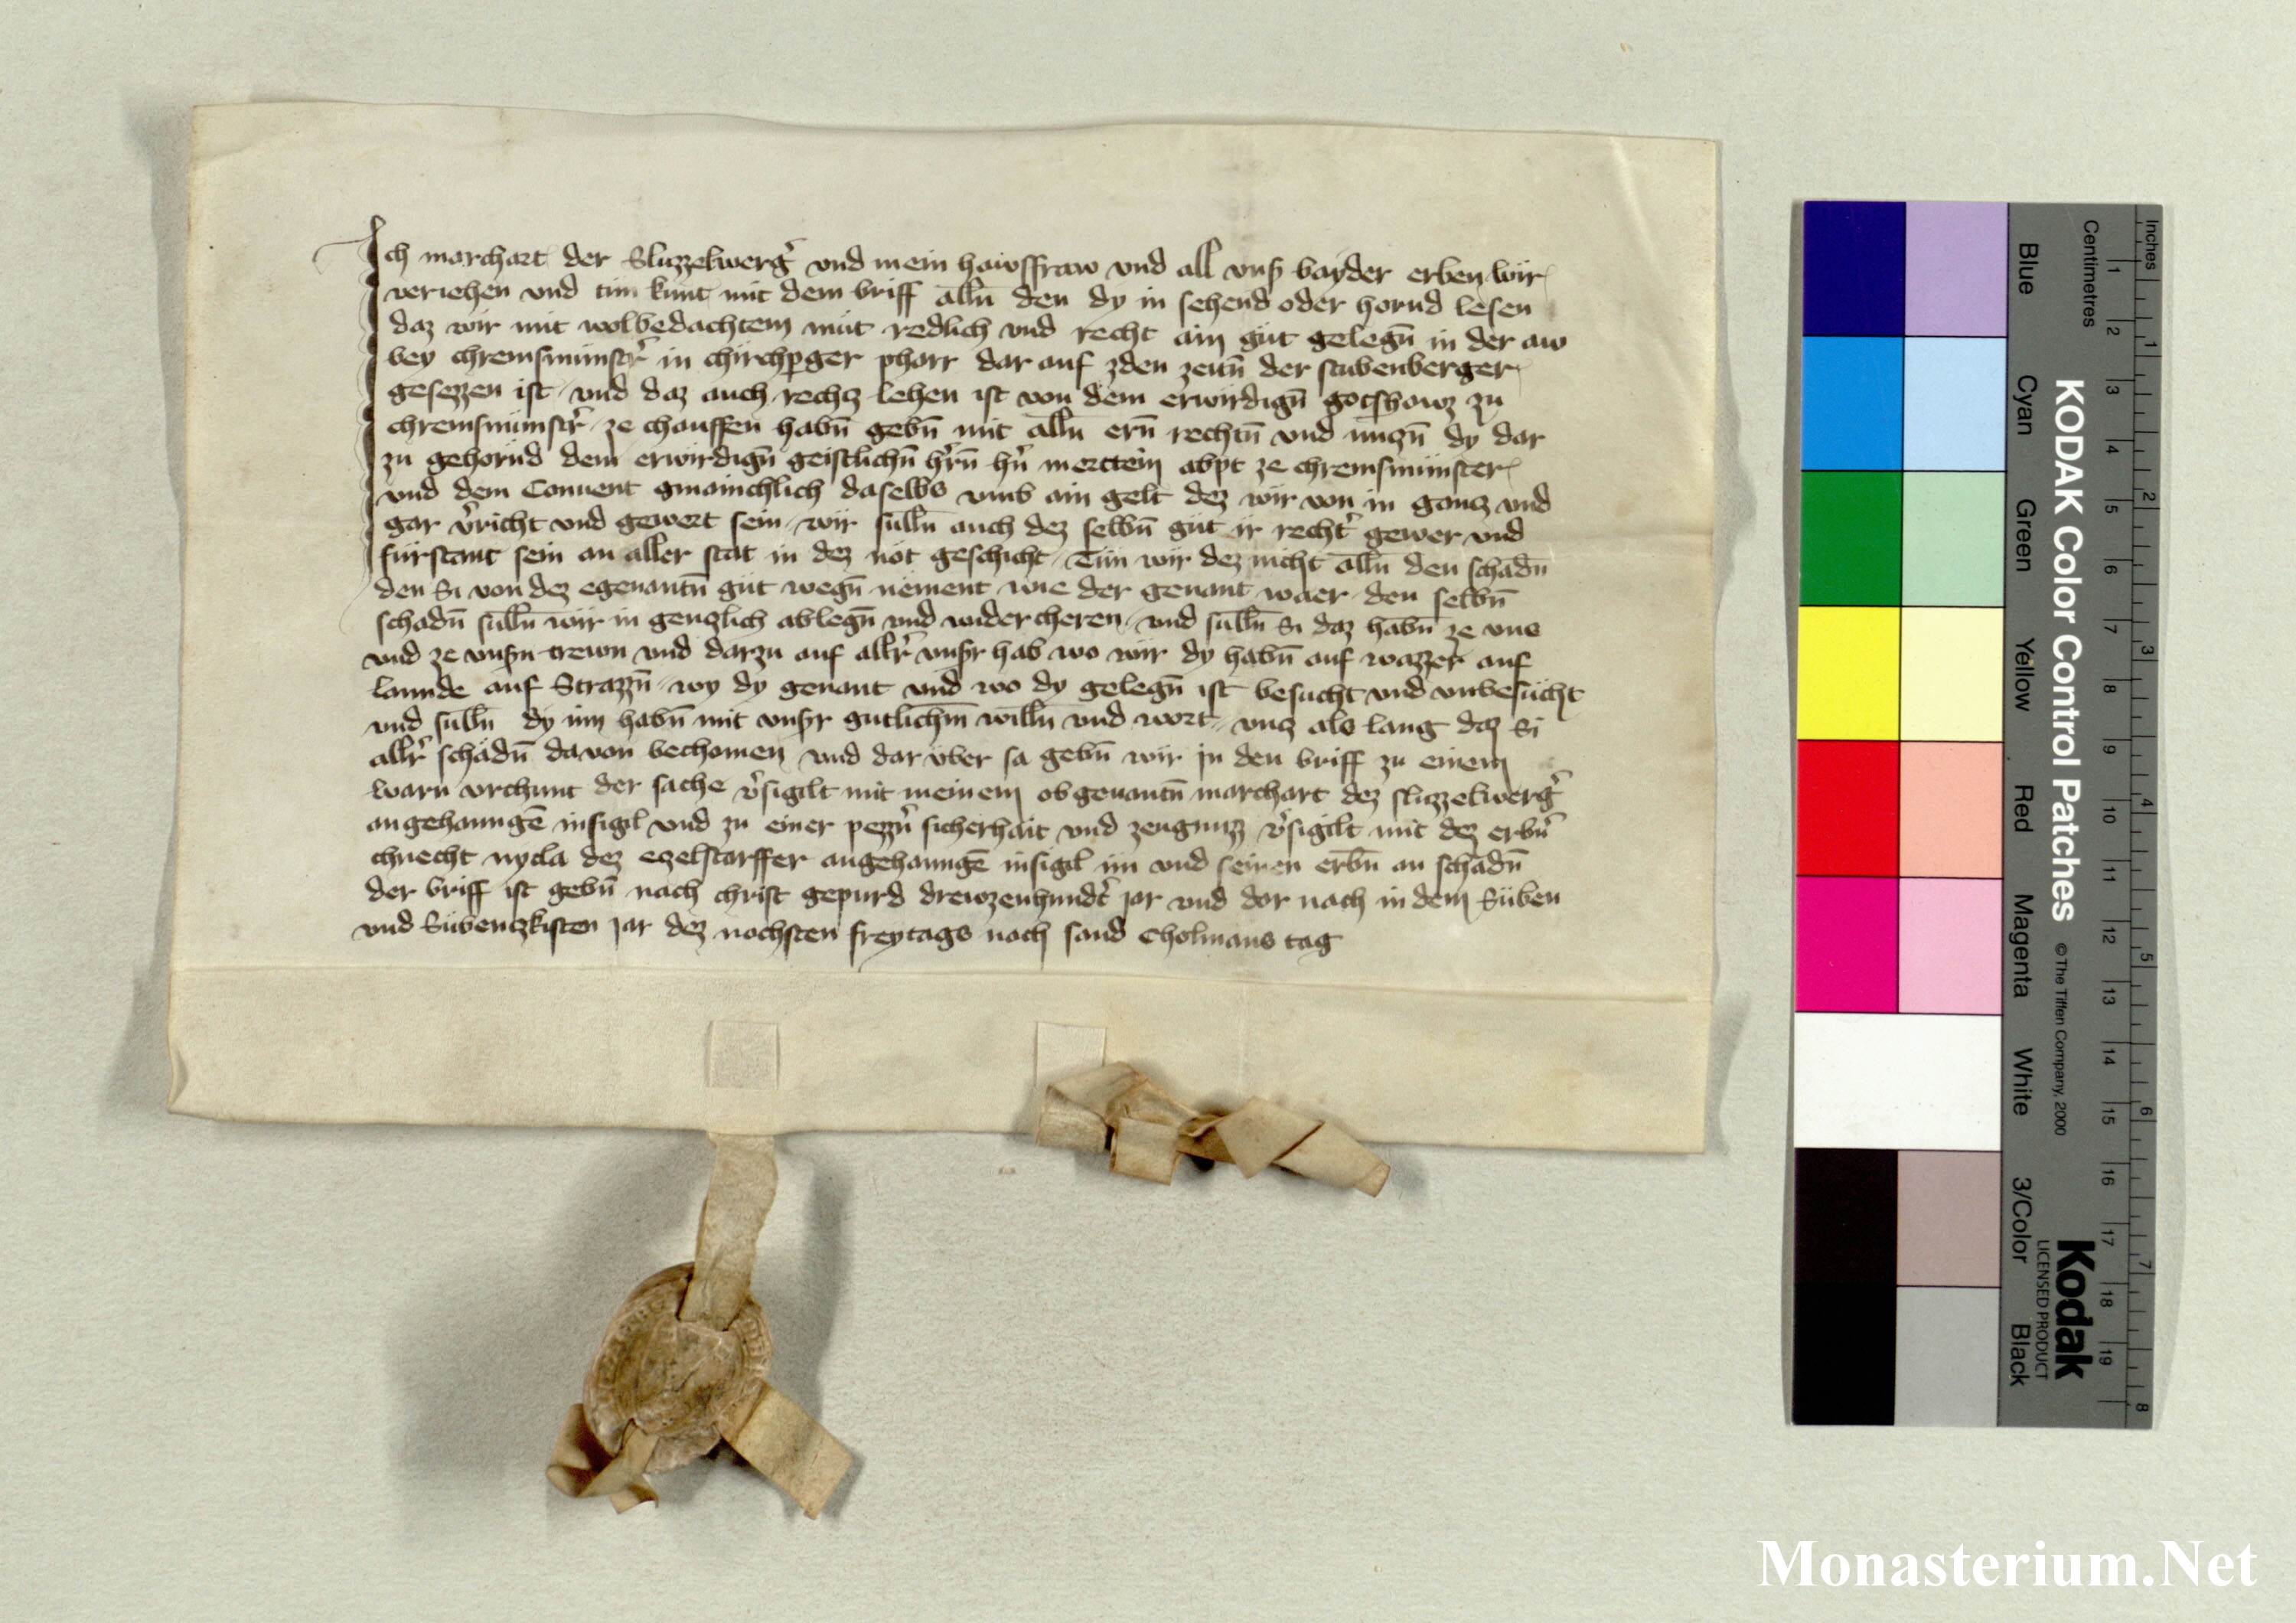 Ich marchart der Sluzzelwerg̉ vnd mein hawsfraw vnd all vnß bayder erben wir
veriehen vnd tün kunt mit dem briff alln̄ den dy in sehend oder hornd lesen
daz wir mit wolbedachtem müt redlich vnd recht ain güt gelegn̄ in der aw
bey chremsmünstr̉ in chirchꝑger pharr dar auf zden zeitn̄ der stubenberger
gesezzen ist vnd daz auch rechtz lehen ist von dem erwirdign̄ gotshawz zu
chremsmünstr̉ ze chauffen habn̄ gebn̄ mit alln̄ ern̄ rechtn̄ vnd nutzn̄ dy dar
zu gehornd dem erwirdign̄ geistlichn̄ hr̉n̄ hn̉ merttein abpt ze chremsmünster
vnd dem Conuent gmainchlich daselbs vmb ain gelt dez wir von in gantz vnd
gar v̉richt vnd gewert sein wir sulln̄ auch dez selbn̄ güt ir recht̉ gewer vnd
fürstant sein an aller stat in dez nöt geschicht Tün wir dez nicht alln̄ den schadn̄
den Si von dez egenantn̄ güt wegn̄ nement wie der genant waer den selbn̄
schadn̄ sulln̄ wir in gentzlich ablegn̄ vnd widercheren vnd sulln̄ Si daz habn̄ ze vns
vnd ze vnßn trewn vnd darzu auf allr̉ vnßr hab wo wir dy habn̄ auf wazzer auf
lannde auf Strazzn̄ wy dy genant vnd wo dy gelegn̄ ist besucht vnd vnbesücht
vnd sulln̄ dy inn habn̄ mit vnßr gutlichm̄ willn̄ vnd wort vntz als lang daz Si
allr̉ schadn̄ davon bechomen vnd dar über sa gebn̄ wir in den briff zu einem
warn vrchunt der sache v̉sigilt mit meinem obgenantn̄ marchart dez sluzzelwerg̉
angehanngē insigil vnd zu einer pezzn̉ sicherhait vnd zeugnuzz v̉sigilt mit dez erbn̉
chnecht nycla dez etzelstarffer angehanngē insigil im vnd seinen erbn̄ an schadn̄
der briff ist gebn̄ nach christ gepurd drewzenhundt̉ jar vnd dar nach in dem Süben
vnd Sübentzkisten jar dez nachsten freytags nach sand Cholmans tag
KODAK Color Control Patches
© The Tiffen Company, 2000
Kodak
LICENSED PRODUCT
Blue Cyan Green Yellow Red Magenta White 3/Color Black
Inches 1 2 3 4 5 6 7 8
Centimetres 1 2 3 4 5 6 7 8 9 10 11 12 13 14 15 16 17 18 19
Monasterium.Net